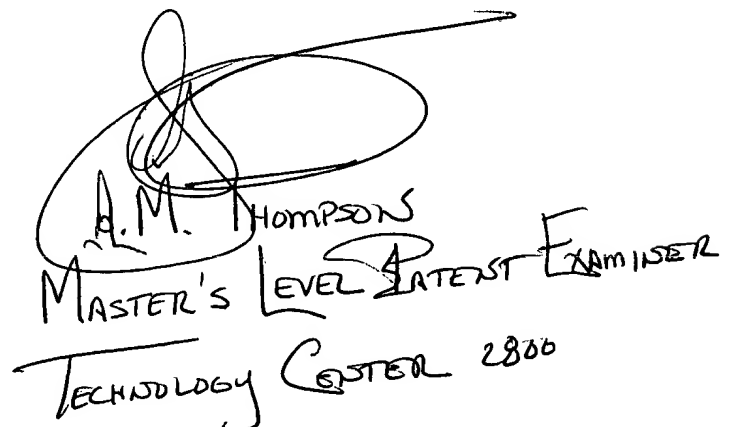 A.M. THOMPSON
MASTER'S LEVEL PATENT EXAMINER
TECHNOLOGY CENTER 2800